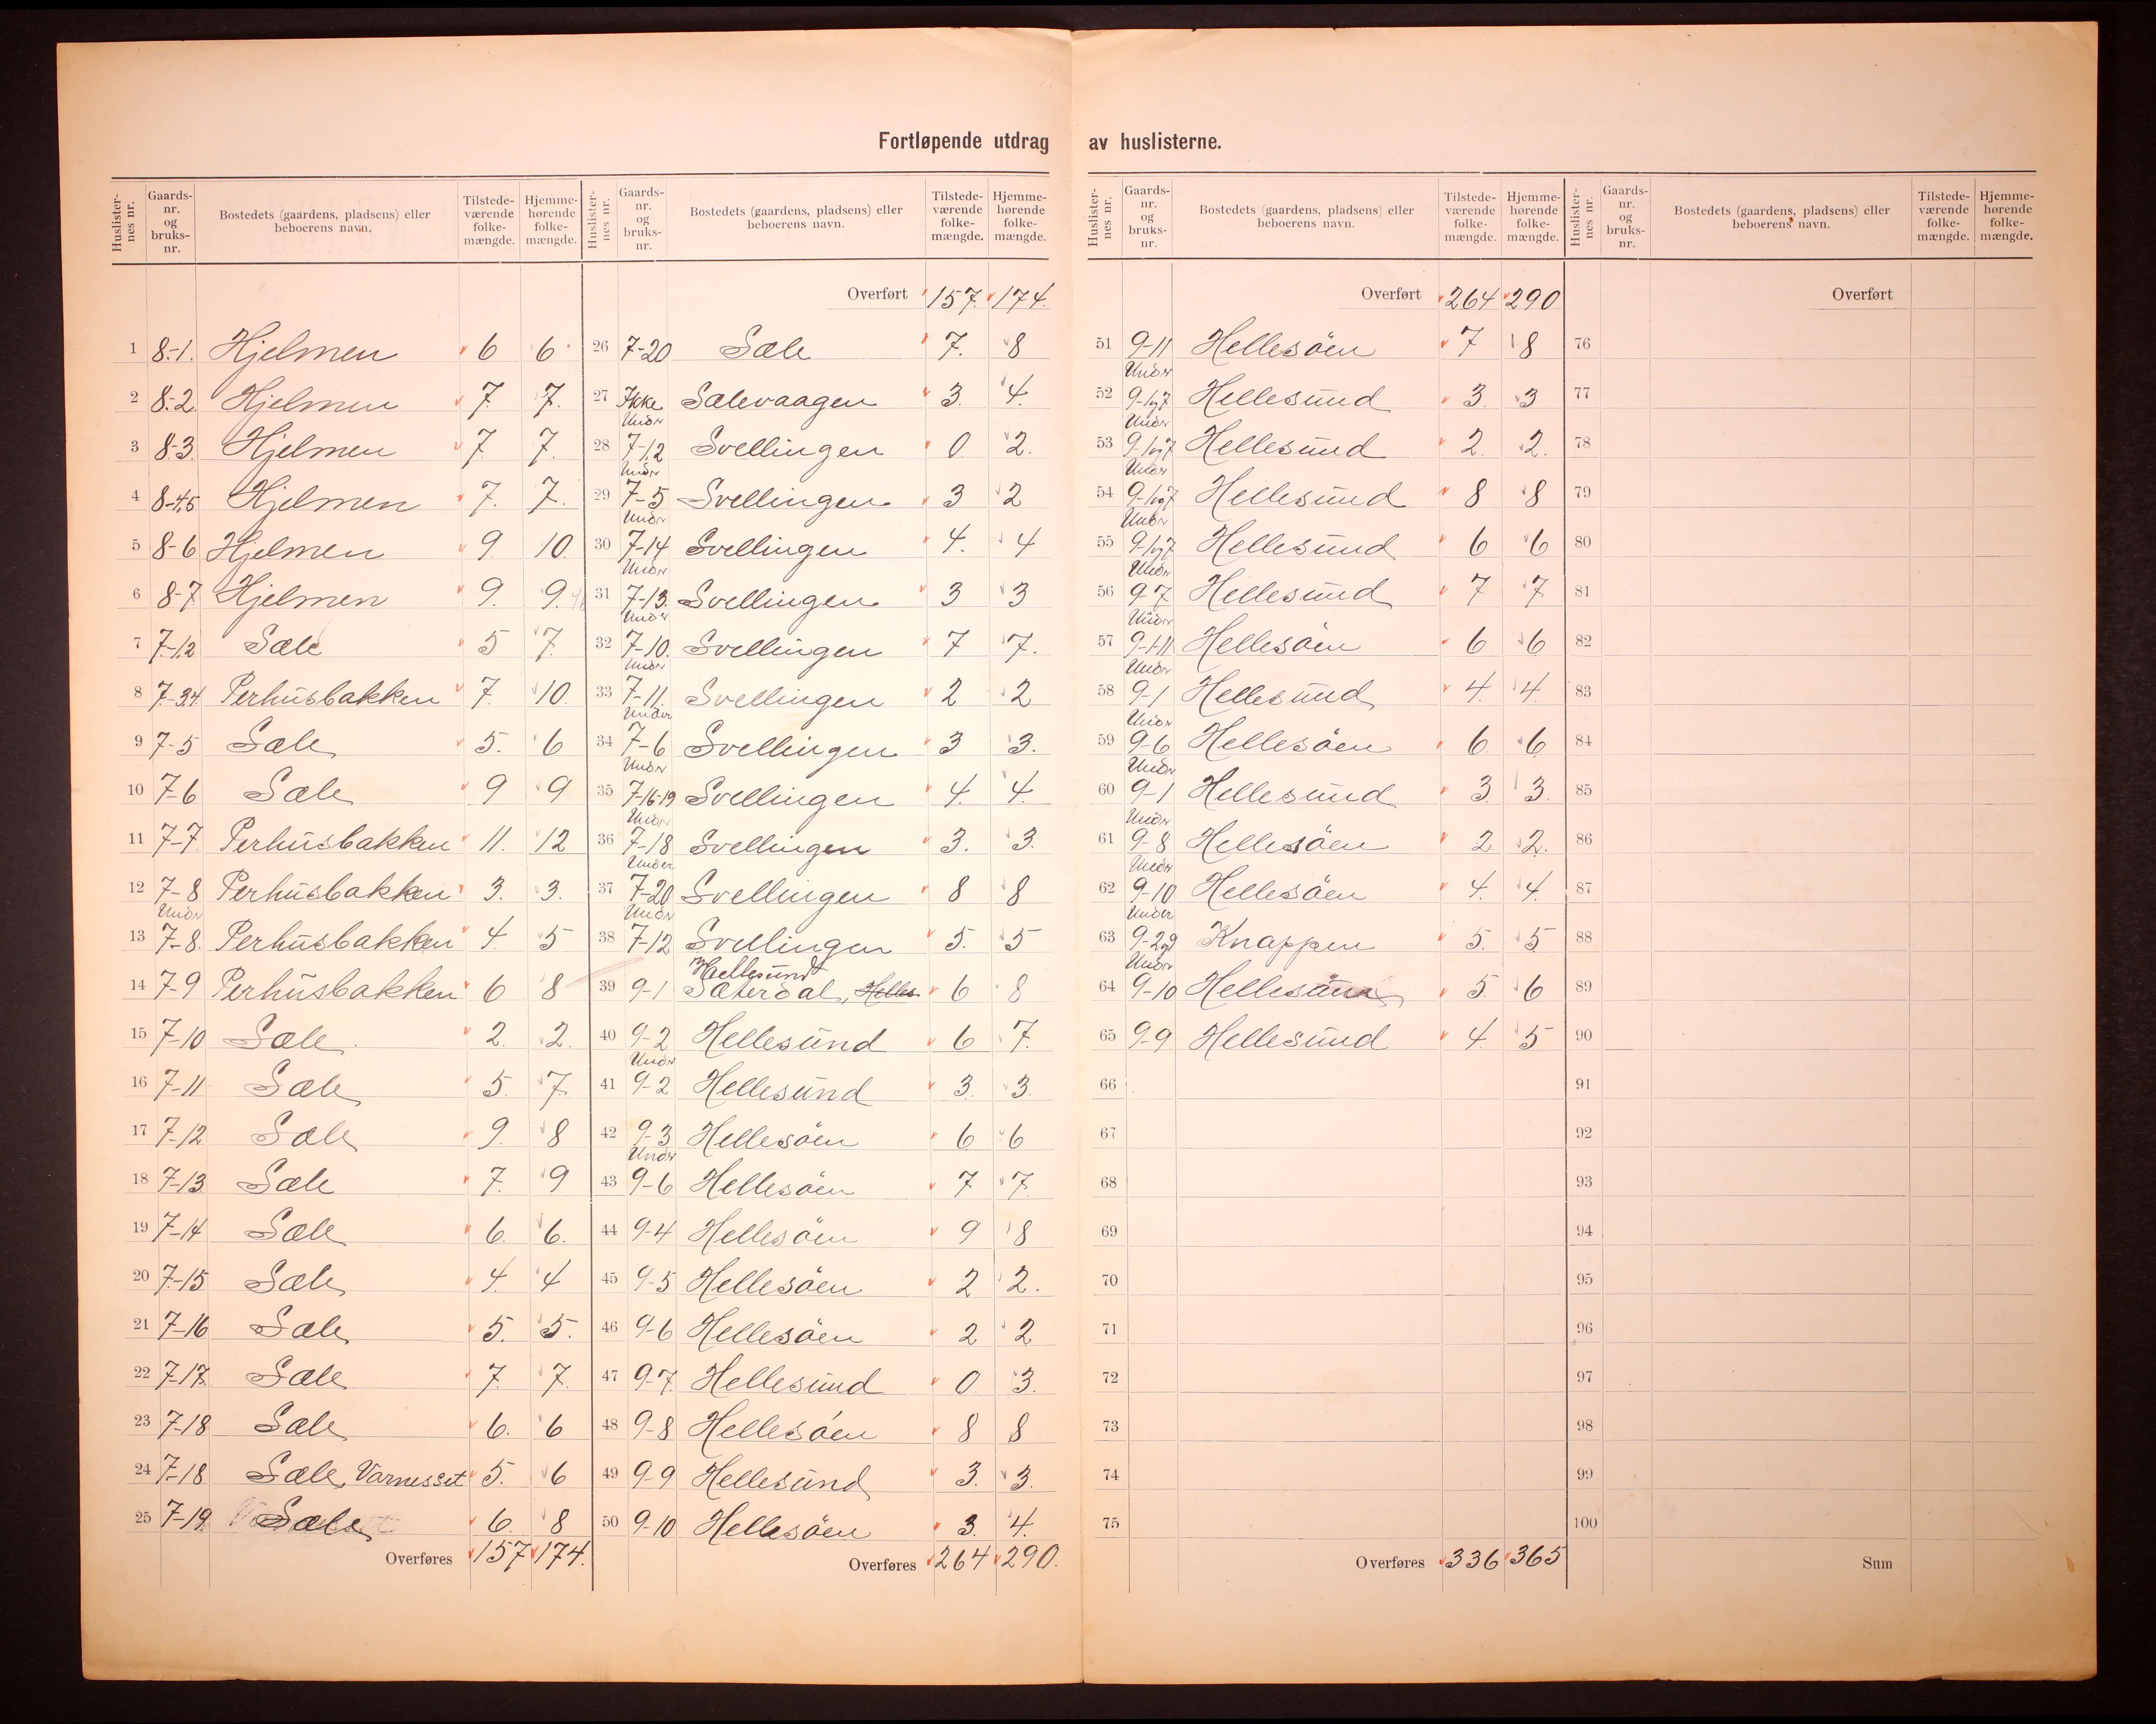 Fortløpende utdrag av huslisterne.
Huslisternes nr. Gaardsnr. og bruksnr. Bostedets (gaardens, pladsens) eller beboerens navn. Tilstedeværende folkemængde. Hjemmehørende folkemængde.
1 8-1. Hjelmen 6 6
2 8-2. Hjelmen 7. 7.
3 8-3. Hjelmen 7 7.
4 8-4,5 Hjelmen 7. 7.
5 8-6 Hjelmen 9. 10.
6 8-7. Hjelmen 9. 9.
7 7-1,2 Sæle 5 7.
8 7-3,4. Perhusbakken 7. 10.
9 7-5 Sæle 5. 6
10 7-6 Sæle 9 9
11 7-7. Perhusbakken 11. 12
12 7-8 Perhusbakken 3. 3.
13 Under 7-8. Perhusbakken 4. 5
14 7-9 Perhusbakken 6 8
15 7-10 Sæle. 2. 2.
16 7-11 Sæle 5. 7.
17 7-12 Sæle 9. 8
18 7-13 Sæle 7. 9
19 7-14 Sæle 6. 6.
20 7-15 Sæle 4. 4
21 7-16 Sæle 5. 5.
22 7-17. Sæle 7. 7.
23 7-18 Sæle 6. 6
24 7-18 Sæle, Varnesset 5. 6
25 7-19. Sæle 6. 8
Overføres 157 174.
Huslisternes nr. Gaardsnr. og bruksnr. Bostedets (gaardens, pladsens) eller beboerens navn. Tilstedeværende folkemængde. Hjemmehørende folkemængde.
Overført 157. 174.
26 7-20 Sæle 7. 8
27 Ikke Sælevaagen 3. 4.
28 Under 7-1,2 Svellingen 0 2.
29 Under 7-5 Svellingen 3 2
30 Under 7-14 Svellingen 4. 4
31 Under 7-13. Svellingen 3 3
32 Under 7-10. Svellingen 7 7.
33 Under 7-11. Svellingen 2 2
34 Under 7-6 Svellingen 3 3.
35 Under 7-16-19 Svellingen 4. 4.
36 Under 7-18 Svellingen 3. 3.
37 Under 7-20 Svellingen 8 8
38 Under 7-12 Svellingen 5. 5
Hellesund
39 9-1 Sæterdal, Helles 6 8
40 9-2 Hellesund 6 7.
41 Under 9-2 Hellesund 3. 3.
42 9-3 Hellesöen 6 6
43 Under 9-6 Hellesöen 7 7.
44 9-4 Hellesöen 9 8
45 9-5 Hellesöen 2 2.
46 9-6 Hellesöen 2 2
47 9-7. Hellesund 0. 3.
48 9-8 Hellesöen 8 8
49 9-9 Hellesund 3. 3.
50 9-10 Hellesöen 3. 4.
Overføres 264 290.
Huslisternes nr. Gaardsnr. og bruksnr. Bostedets (gaardens, pladsens) eller beboerens navn. Tilstedeværende folkemængde. Hjemmehørende folkemængde.
Overført 264 290
51 9-11 Hellesöen 7 8
52 Under 9-1og7 Hellesund 3. 3
53 Under 9-1og7 Hellesund 2. 2.
54 Under 9-1og7 Hellesund 8 8
55 Under 9-1og7 Hellesund 6 6
56 Under 9-7 Hellesund 7 7
57 Under 9-1-11 Hellesöen 6 6
58 Under 9-1 Hellesund 4. 4.
59 Under 9-6 Hellesöen 6. 6
60 Under 9-1 Hellesund 3. 3.
61 Under 9-8 Hellesöen 2. 2.
62 Under 9-10 Hellesöen 4. 4.
63 Under 9-2og9 Knappen 5. 5
64 Under 9-10 5. 6
65 9-9 Hellesund 4. 5
66
67
68
69
70
71
72
73
74
75
Overføres 336 365
Huslisternes nr. Gaardsnr. og bruksnr. Bostedets (gaardens, pladsens) eller beboerens navn. Tilstedeværende folkemængde. Hjemmehørende folkemængde.
Overført
76
77
78
79
80
81
82
83
84
85
86
87
88
89
90
91
92
93
94
95
96
97
98
99
100
Sum